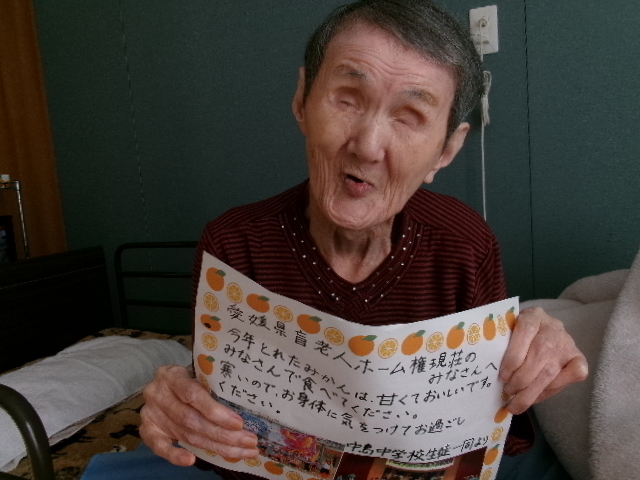 愛媛県盲老人ホーム権現荘の
みなさんへ
今年とれたみかんは、甘くておいしいです。
みなさんで食べてください。
寒いので、お身体に気をつけてお過ごし
ください。
中島中学校生徒一同より